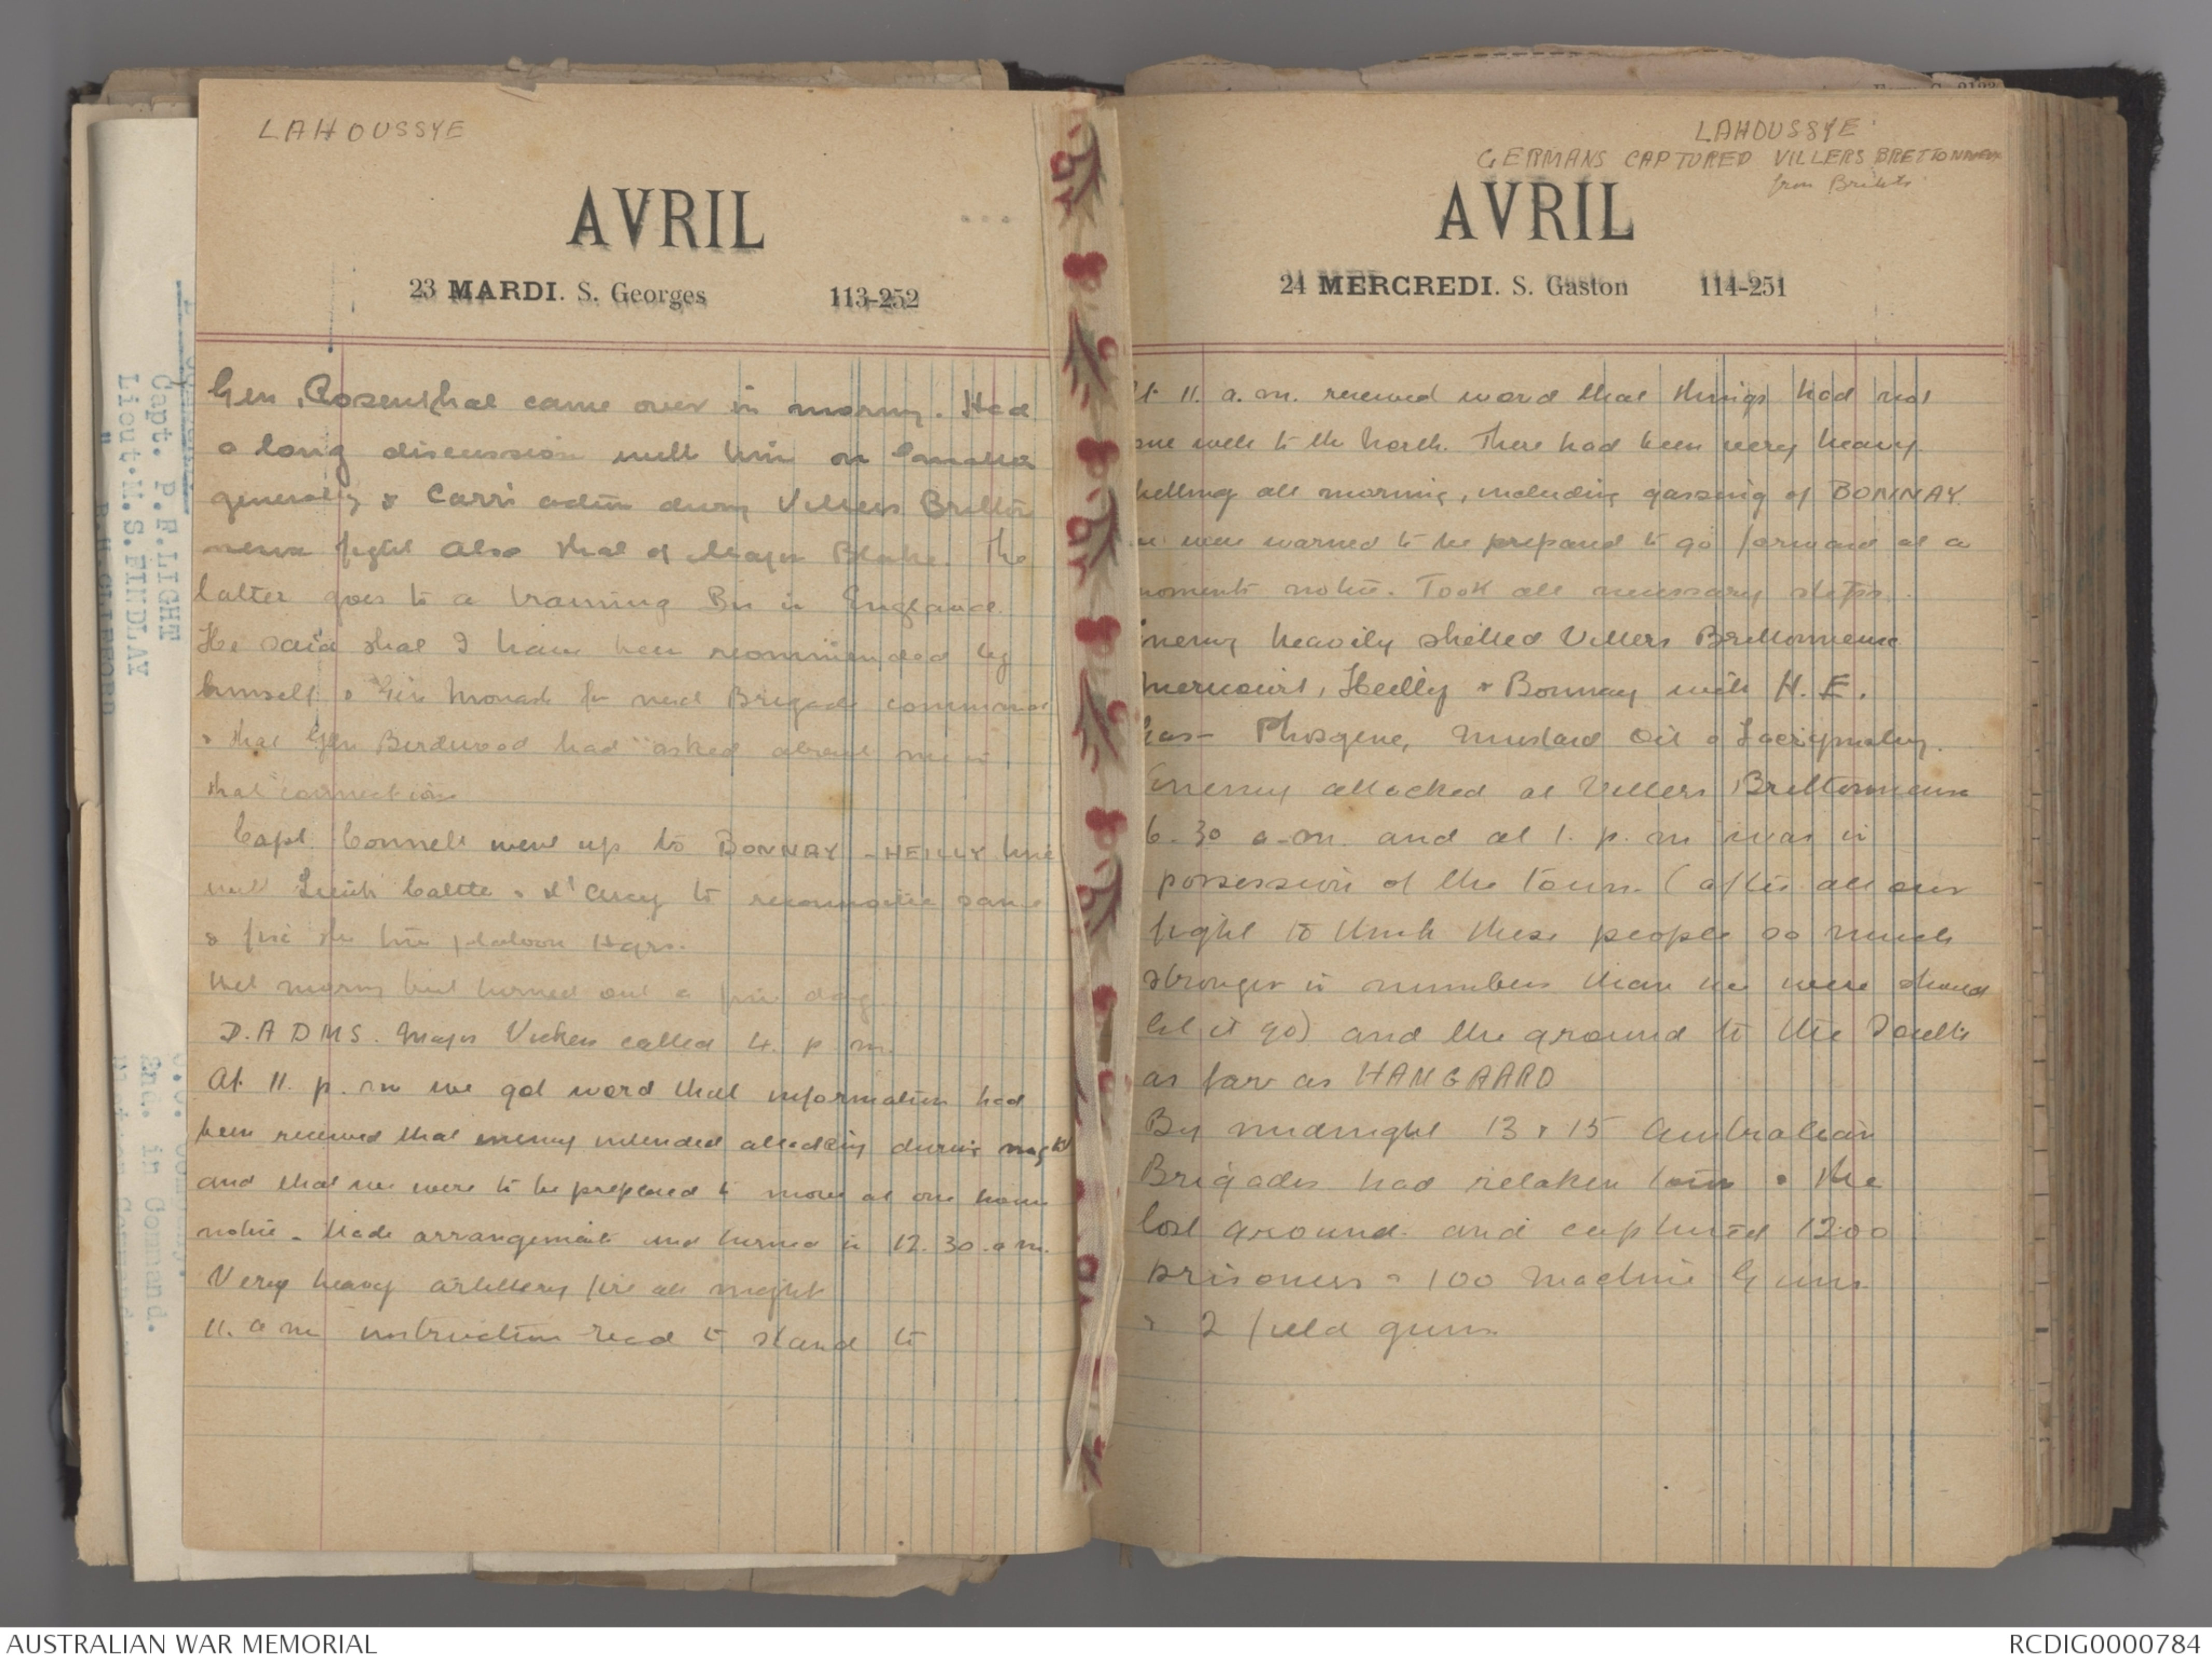 LAHOUSSYE
AVRIL
23 MARDI. S. Georges 113-252
Gen. Rosenthal came over in morning. Had
a long discussion with him on
generally & action during Villers Bretton
neux fight also that of Major Blake. The
latter goes to a training Bn in England.
He said that I have been recommended by
himself & Gen Monash for next Brigade command
& that Gen Birdwood had asked about me in
that connection
Capt. Connell went up to BONNAY - HEILLY line
with Lieuts & to reconnoitre same
& fix the line platoon Hqrs.
Wet morng but turned out a fine day.
D.A D M S. Major Vickers called 4. p m.
At 11. p. m we got word that information had
been received that enemy intended attacking during night
and that we were to be prepared to move at one hours
notice. Made arrangements and turned in 12.30 a m.
Very heavy artillery fire all night
11. a m instruction recd to stand to
LAHOUSSYE
GERMANS CAPTURED VILLERS BRETTONNEUX
from British
AVRIL
24 MERCREDI. S. Gaston 114-251
At 11. a. m. received word that things had not
gone well to the North. There had been very heavy
shelling all morning, including gassing of BONNAY.
We were warned to be prepared to go forward at a
moments notice. Took all necessary steps.
Enemy heavily shelled Villers Brettonneux
Mericourt, Heilly & Bonnay with H. E.
Gas - Phosgene, Mustard Oil & Lacrymatory.
Enemy attacked at Villers Brettonneux
6. 30 a.m. and at 1. p. m was in
possession of the town (after all our
fight to think these people so much
stronger in numbers than we were should
let it go) and the ground to the South
as far as HANGAARD
By midnight 13 & 15 Australian
Brigades had retaken town & the
lost ground. and captured 1200
prisoners & 100 Machine Guns
& 2 field guns.
Capt. P.F.LIGHT
Lieut.M.S.FINDLAY
2nd. in Command.
AUSTRALIAN WAR MEMORIAL
RCDIG0000784